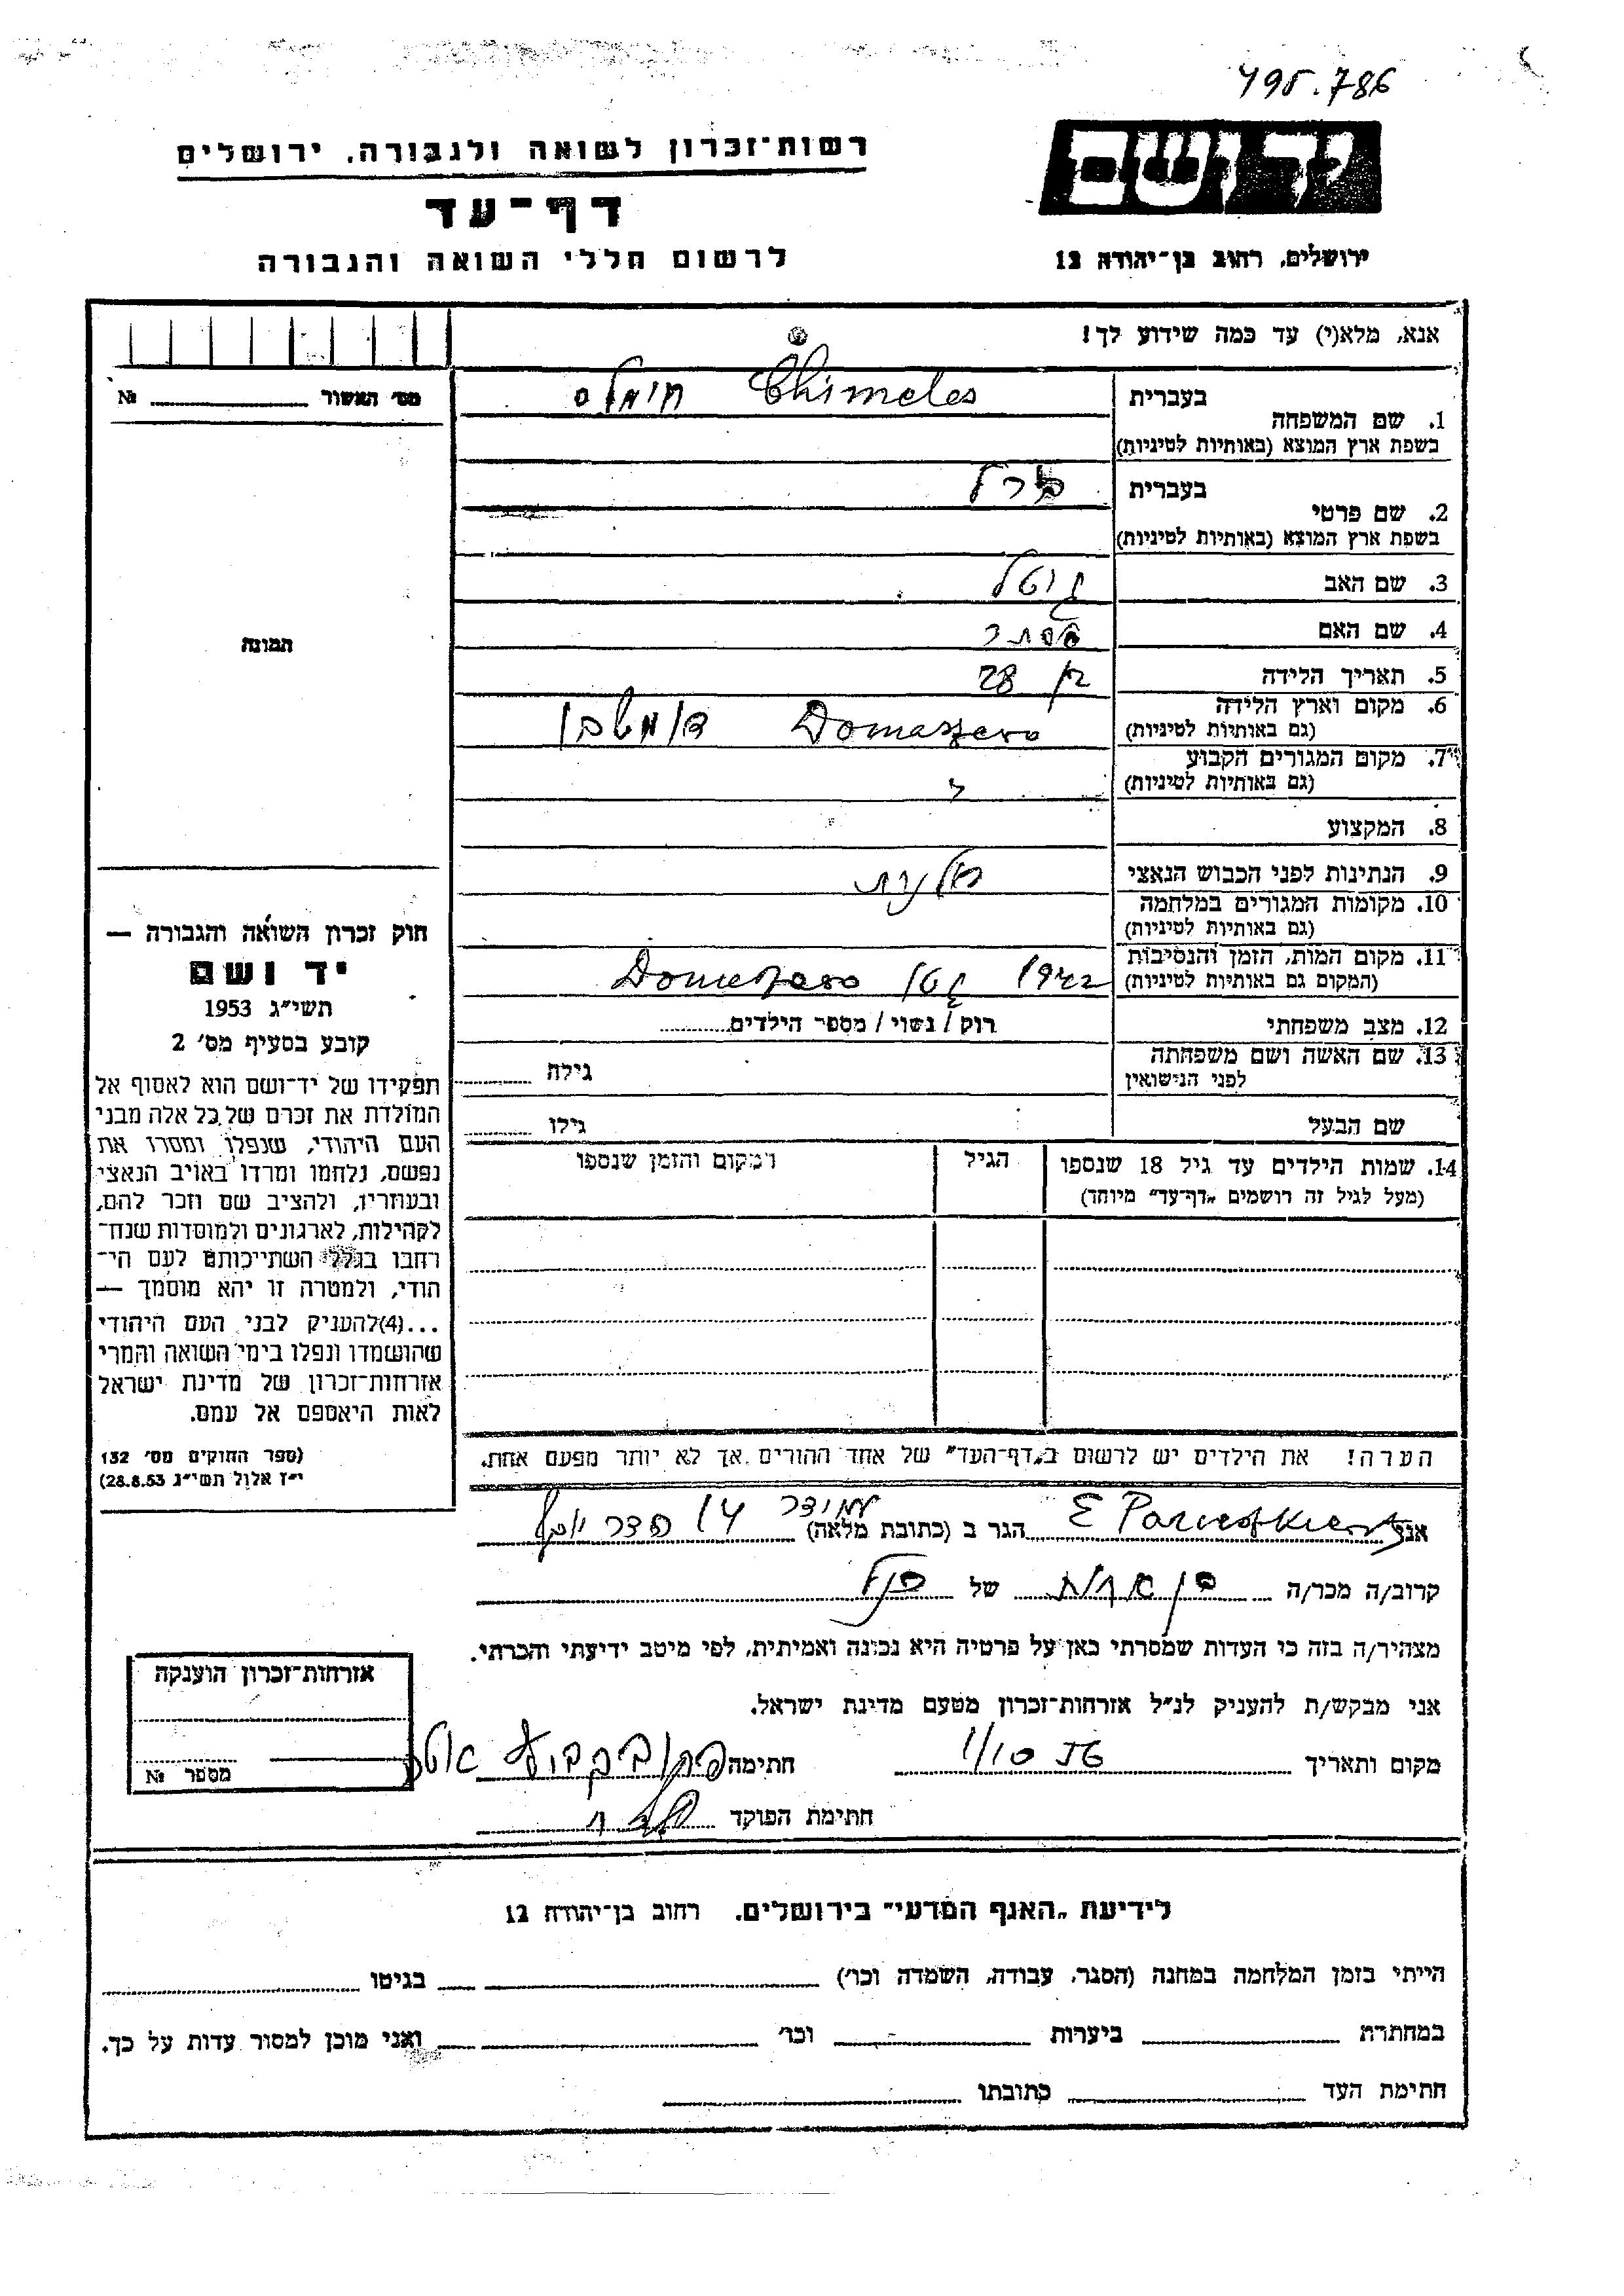 495.786
יד ושם
רשות־זכרון לשואה ולגבורה, ירושלים
דף־עד
לרשום חללי השואה והגבורה
ירושלים, רחוב בן־יהודה 12
אנא, מלא(י) עד כמה שידוע לך!
מס׳ האשור № 
1. שם המשפחה בעברית חימלס Chimeles
בשפת ארץ המוצא (באותיות לטיניות)
2. שם פרטי בעברית ברל
בשפת ארץ המוצא (באותיות לטיניות)
3. שם האב
4. שם האם אסתר
5. תאריך הלידה בן 28
6. מקום וארץ הלידה
(גם באותיות לטיניות)
7. מקום המגורים הקבוע
(גם באותיות לטיניות)
8. המקצוע
9. הנתינות לפני הכבוש הנאצי
10. מקומות המגורים במלחמה
(גם באותיות לטיניות)
11. מקום המות, הזמן והנסיבות 1942
(המקום גם באותיות לטיניות)
12. מצב משפחתי רוק / נשוי / מספר הילדים
13. שם האשה ושם משפחתה גילה
לפני הנישואין
שם הבעל גילו
14. שמות הילדים עד גיל 18 שנספו הגיל המקום והזמן שנספו
(מעל לגיל זה רושמים „דף־עד״ מיוחד)
התמונה
חוק זכרון השואה והגבורה —
יד ושם
תשי״ג 1953
קובע בסעיף מס׳ 2
תפקידו של יד־ושם הוא לאסוף אל
המולדת את זכרם של כל אלה מבני
העם היהודי, שנפלו ומסרו את
נפשם, נלחמו ומרדו באויב הנאצי
ובעוזריו, ולהציב שם וזכר להם,
לקהילות, לארגונים ולמוסדות שנח־
רבו בגלל השתייכותם לעם הי־
הודי, ולמטרה זו יהא מוסמך —
...(4)להעניק לבני העם היהודי
שהושמדו ונפלו בימי השואה והמרי
אזרחות־זכרון של מדינת ישראל
לאות היאספם אל עמם.
(ספר החוקים מס׳ 132
י״ז אלול תשי״ג 28.8.53)
הערה! את הילדים יש לרשום ב„דף־העד״ של אחד ההורים אך לא יותר מפעם אחת.
אני הגר ב (כתובת מלאה)
קרוב/ה מכר/ה בן אחות של הנ״ל
מצהיר/ה בזה כי העדות שמסרתי כאן על פרטיה היא נכונה ואמיתית, לפי מיטב ידיעתי והכרתי.
אני מבקש/ת להעניק לנ״ל אזרחות־זכרון מטעם מדינת ישראל.
מקום ותאריך 1/10 חתימה
חתימת הפוקד
אזרחות־זכרון הוענקה
מספר №
לידיעת „האגף המדעי״ בירושלים, רחוב בן־יהודה 12
הייתי בזמן המלחמה במחנה (הסגר, עבודה, השמדה וכו׳) בגיטו
במחתרת ביערות וכו׳ ואני מוכן למסור עדות על כך.
חתימת העד כתובתו